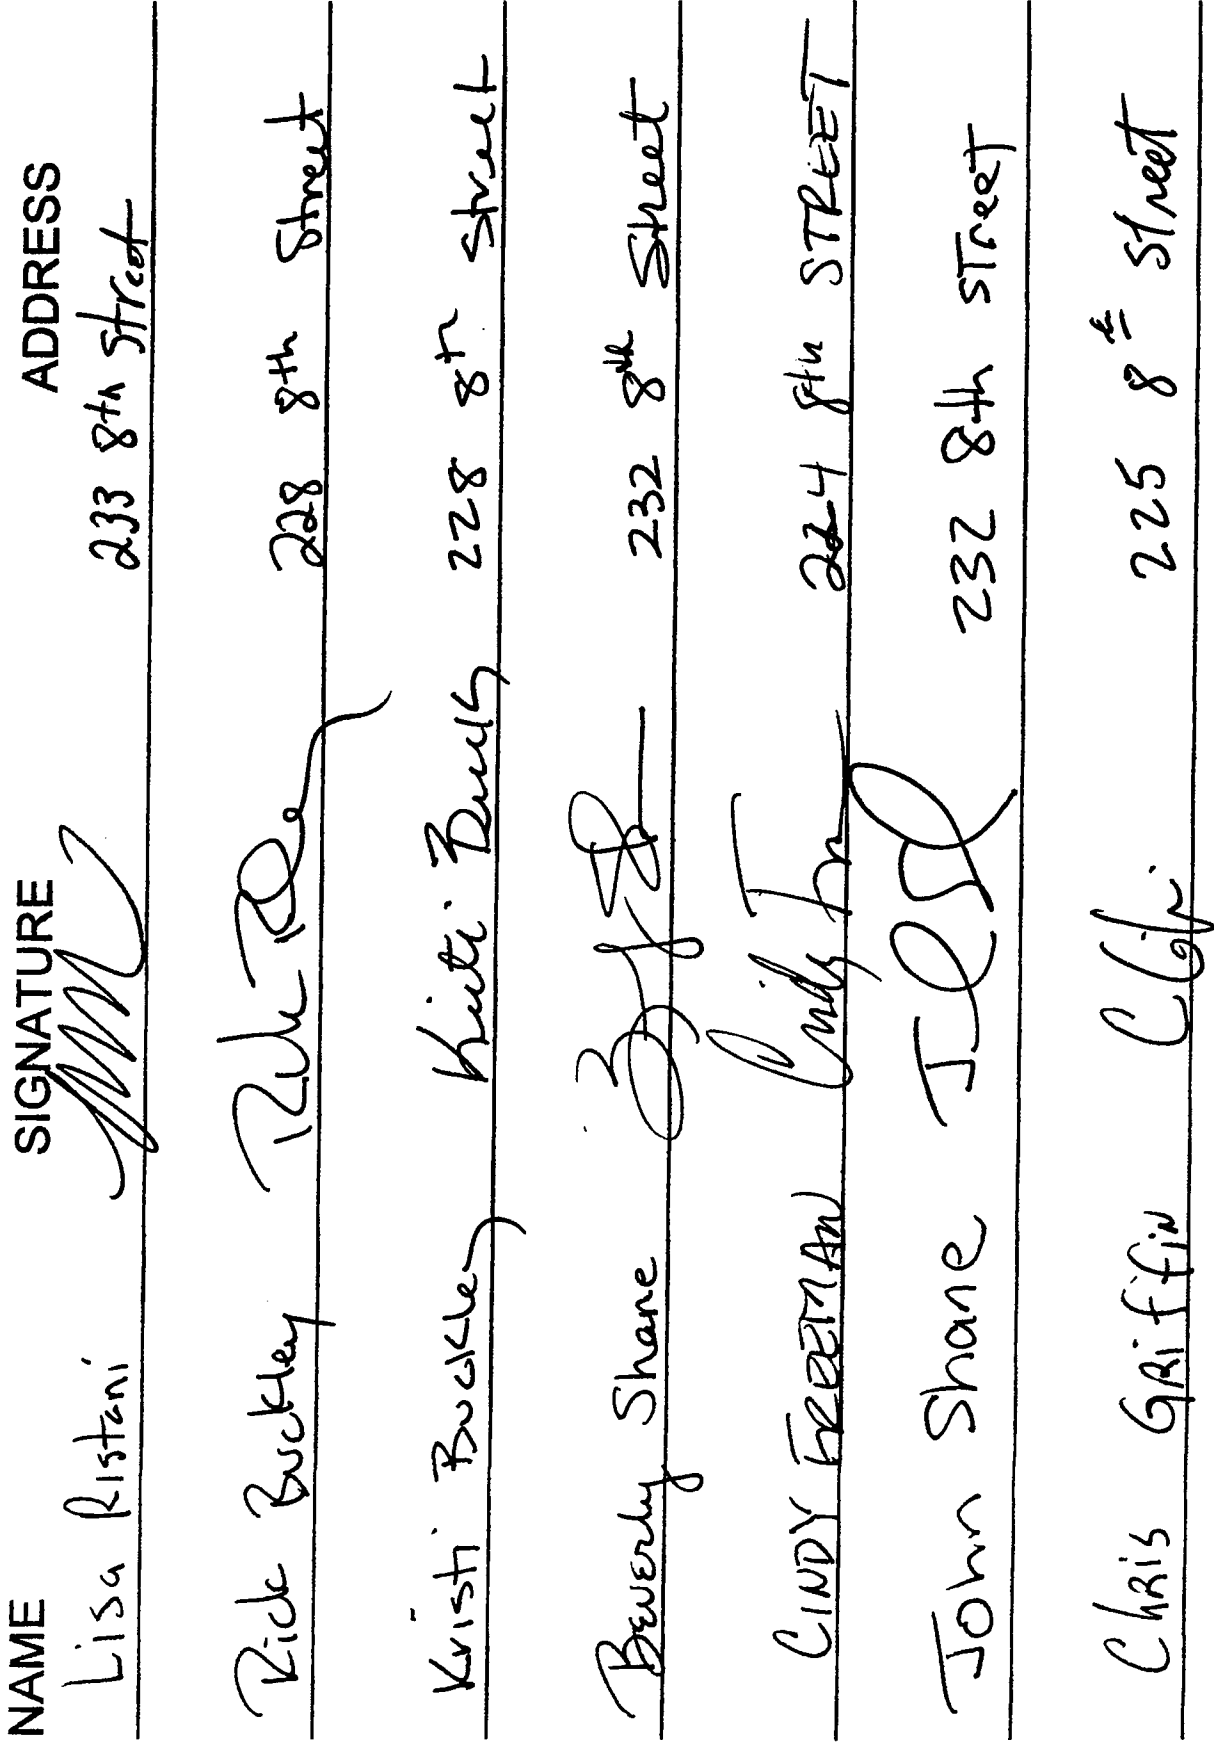 NAME SIGNATURE ADDRESS
Lisa Ristani 233 8th Street
Rick Buckley 228 8th Street
Kristi Buckley 228 8th Street
Beverly Shane 232 8th Street
CINDY FREEMAN 224 8th STREET
John Shane 232 8th Street
Chris Griffin 225 8th Street